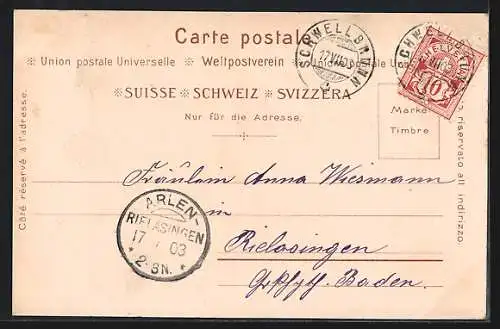 Carte postale
※ Union postale Universelle ※ Weltpostverein ※ Unione postale Uni
※ SUISSE ※ SCHWEIZ ※ SVIZZERA ※
Nur für die Adresse.
Côté réservé à l'adresse.
SCHWELLBRUNN
HELVETIA
10
Marke
Timbre
riservato all' indirizzo.
Fräulein Anna Wiesmann
in
Rielasingen
Baden.
ARLEN-
RIELASINGEN
03
2-3N.